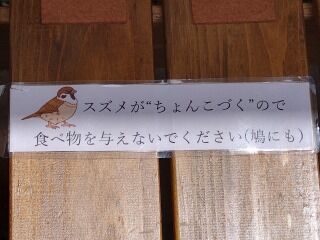 スズメが“ちょんこづく”ので
食べ物を与えないでください(鳩にも)